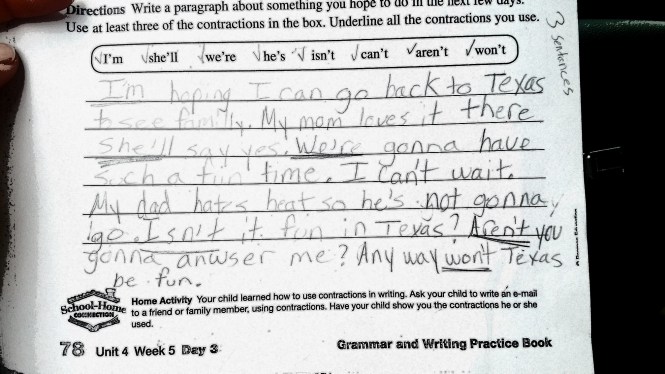 Directions Write a paragraph about something you hope to do in the next few days.
Use at least three of the contractions in the box. Underline all the contractions you use.
3 sentences
√I'm √she'll √we're √he's √isn't √can't √aren't √won't
I'm hoping I can go back to Texas
to see familly. My mom loves it there
She'll say yes. We're gonna have
such a fun time. I can't wait.
My dad hates heat so he's not gonna
go. Isn't it fun in Texas? Aren't you
gonna anwser me? Any way won't Texas
be fun.
School-Home CONNECTION
Home Activity Your child learned how to use contractions in writing. Ask your child to write an e-mail
to a friend or family member, using contractions. Have your child show you the contractions he or she
used.
78 Unit 4 Week 5 Day 3 Grammar and Writing Practice Book